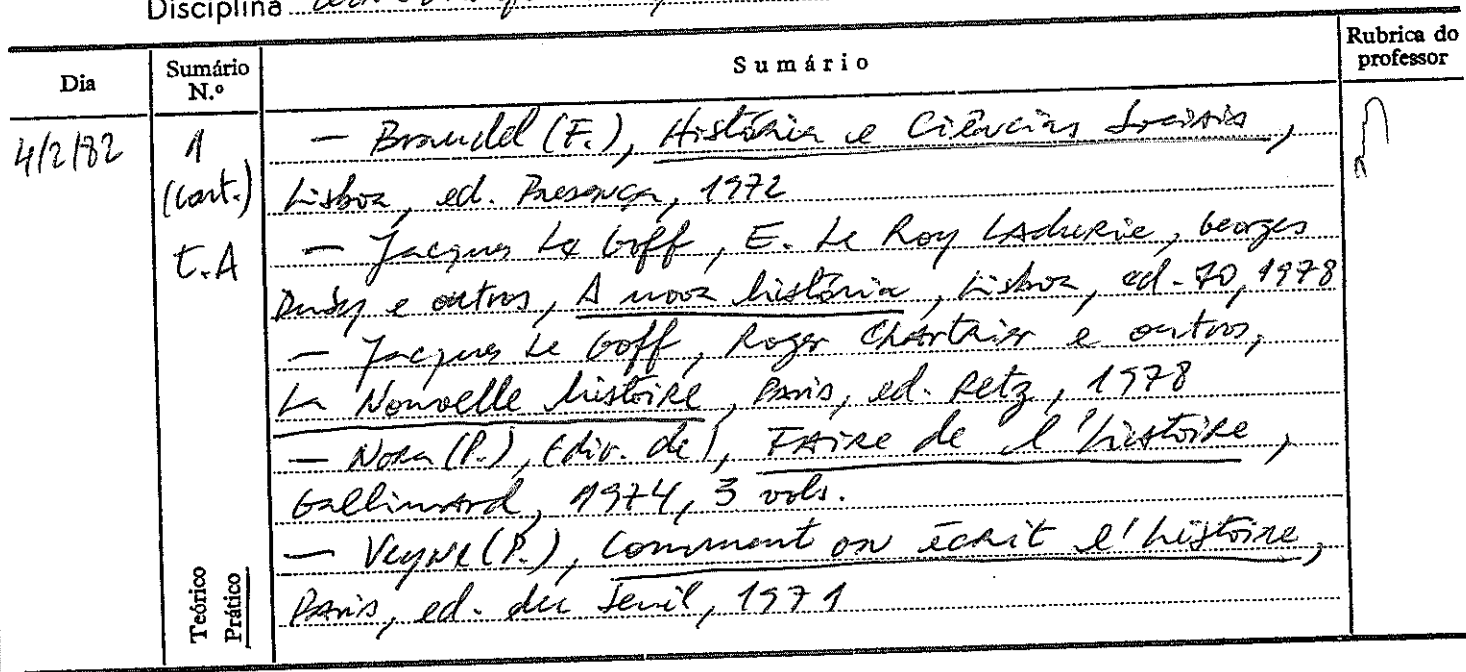 Disciplina
Dia
Sumário N.º
Sumário
Rubrica do professor
4/2/82
1
(cont.)
t.A
— Braudel (F.), História e Ciências Sociais,
Lisboa, ed. Presença, 1972
— Jacques Le Goff, E. Le Roy Ladurie, Georges
Duby e outros, A nova história, Lisboa, ed. 70, 1978
— Jacques Le Goff, Roger Chartier e outros,
La Nouvelle histoire, Paris, ed. Retz, 1978
— Nora (P.), (dir. de), Faire de l'histoire,
Gallimard, 1974, 3 vols.
— Veyne (P.), Comment on écrit l'histoire,
Paris, ed. du Seuil, 1971
Teórico
Prático